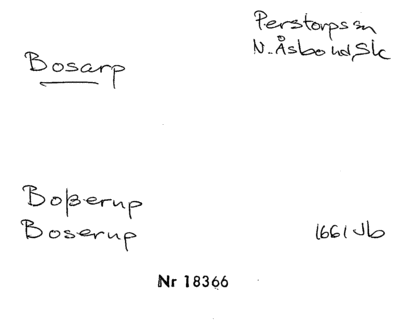 Perstorps sn
N. Åsbo hd, Sk
Bosarp
Boßerup
Boserup 1661 Jb
Nr 18366